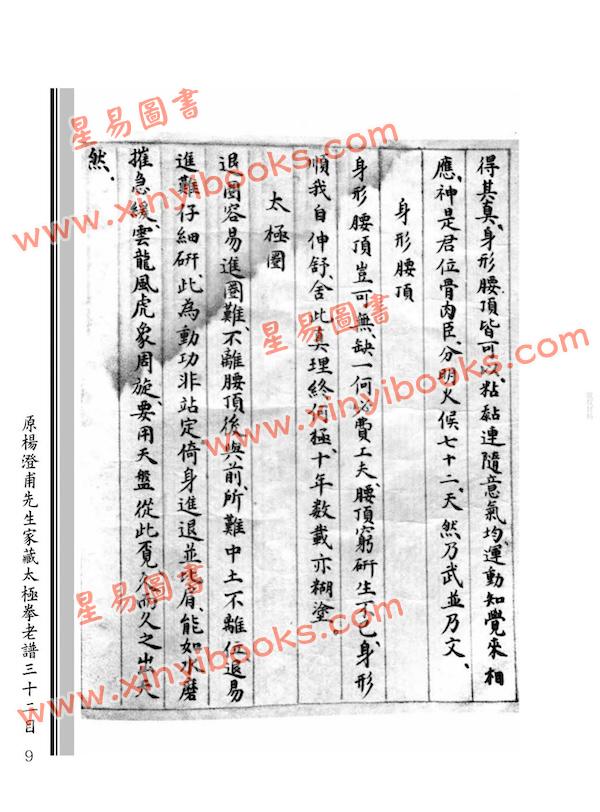 得其真、身形腰頂皆可以、粘黏連隨意氣均、運動知覺來相
應、神是君位骨肉臣、分明火候七十二、天然乃武並乃文、
身形腰頂
身形腰頂豈可無、缺一何必費工夫、腰頂窮研生不已、身形
順我自伸舒、舍此真理終何極、十年数載亦糊塗、
太極圈
退圈容易進圈難、不離腰頂後與前、所難中土不離位、退易
進難仔細研、此為動功非站定、倚身進退並比肩、能如水磨
摧急緩、雲龍風虎象周旋、要用天盤從此覓、久而久之出天
然、
原楊澄甫先生家藏太極拳老譜三十二目
9
星易圖書
www.xinyibooks.com
星易圖書
www.xinyibooks.com
星易圖書
www.xinyibooks.com